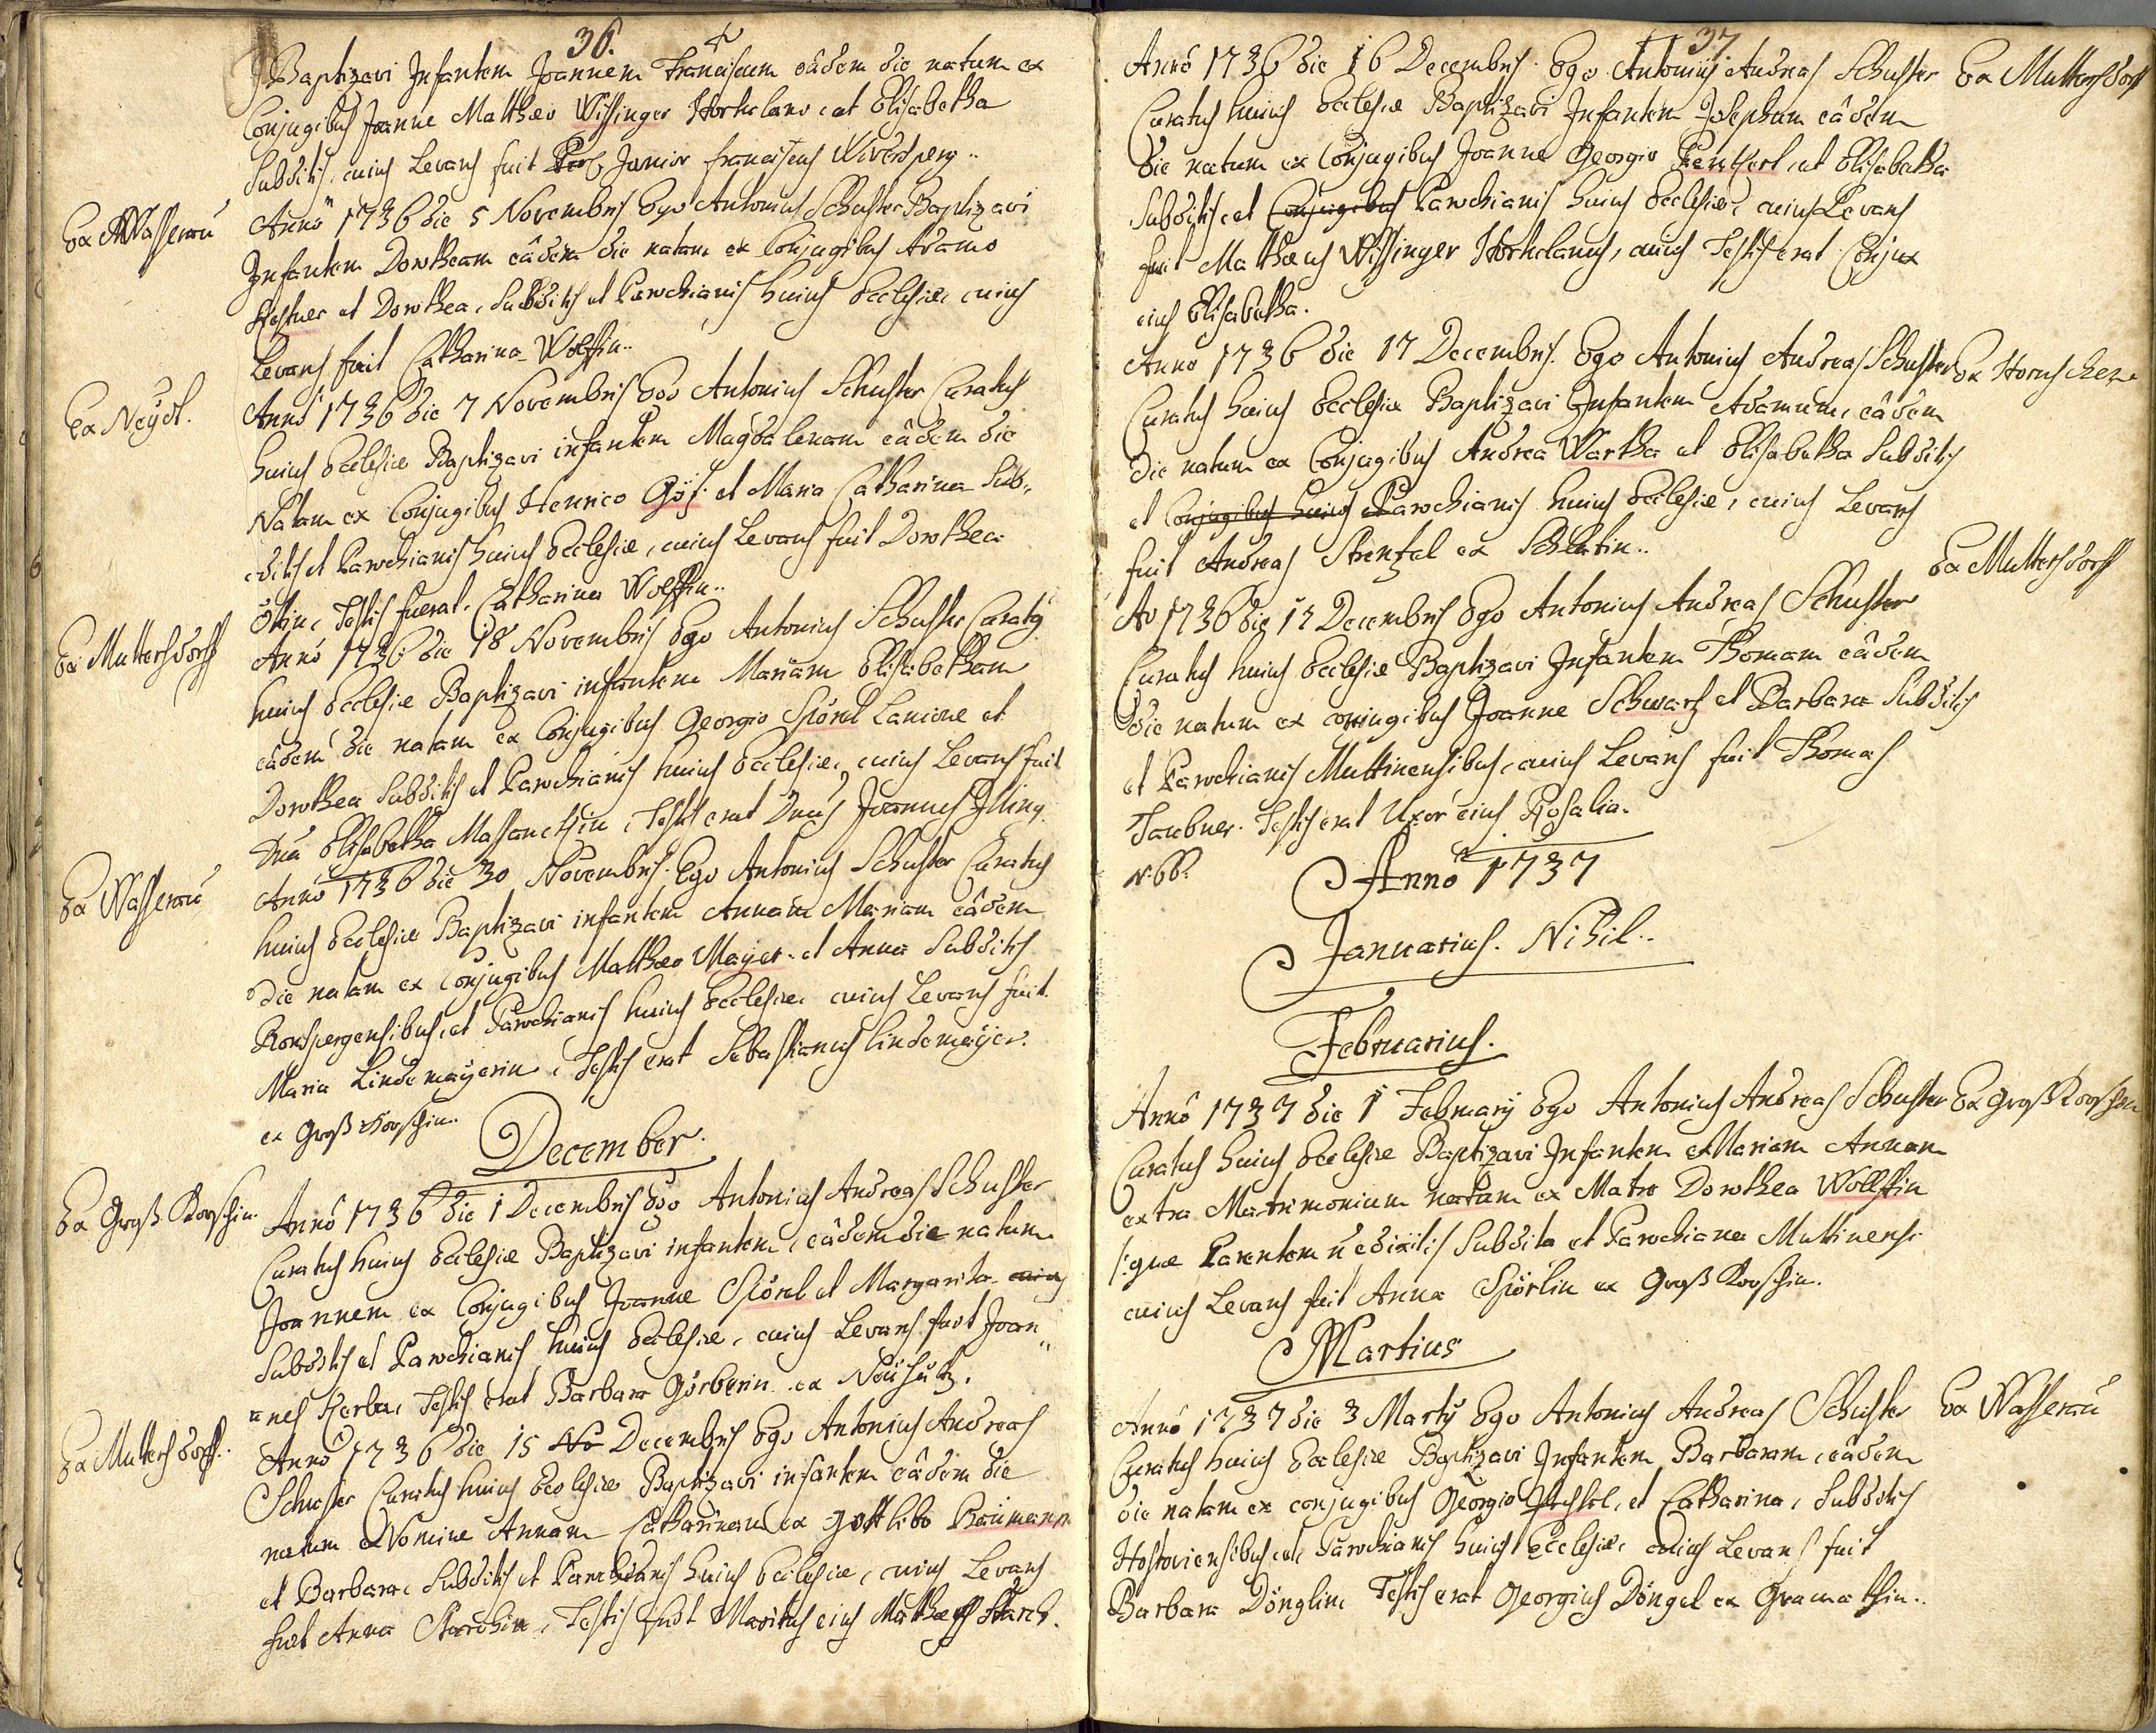 36.
Baptizavi Infantem Joannem Franciscum eâdem die natum ex
Conjugibus Joanne Matthæo Wissinger Hortulano et Elisabetha
Subditis, cuius Levans fuit Junior Franciscus Wiverdsperg..
Ex Wasserau
Anno 1736 die 5 Novembris Ego Antonius Schuster Baptizavi
Infantem Dorotheam eâdem die natam ex Conjugibus Adamo
et Dorothea, Subditis et Parochianis huius Ecclesiæ, cuius
Levans fuit Catharina Wolffin..
Ex Neÿd.
Anno 1736 die 7 Novembris Ego Antonius Schuster Curatus
huius Ecclesiæ Baptizavi infantem Magdalenam eâdem die
Natam ex Conjugibus Henrico Göst et Maria Catharina Sub,,
ditis et Parochianis huius Ecclesiæ, cuius Levans fuit Dorothea
Testis fuerat Catharina Wolffin..
Ex Muttersdorff
Anno 1736 die 18 Novembris Ego Antonius Schuster Curatus
huius Ecclesiæ Baptizavi infantem Mariam Elisabetham
eâdem die natam ex Conjugibus Georgio Spörl Lanione et
Dorothea Subditis et Parochianis huius Ecclesiæ, cuius Levans fuit
Dna Elisabetha Testis erat Dnus Joannes Illing
Ex Wasserau
Anno 1736 die 30 Novembris Ego Antonius Schuster Curatus
huius Ecclesiæ Baptizavi infantem Annam Mariam eâdem
die natam ex Conjugibus Matthæo Mayer et Anna Subditis
Ronspergensibus, et Parochianis huius Ecclesiæ cuius Levans fuit
Maria Lindemaÿerin, Testis erat Sebastianus Lindemaÿer
ex Groß Korschin.
December.
Ex Groß Korschin.
Anno 1736 die 1 Decembris Ego Antonius Andreas Schuster
Curatus huius Ecclesiæ Baptizavi infantem, eâdem die natum
Joannem ex Conjugibus Joanne Spörl et Margarita cuius
Subditis et Parochianis huius Ecclesiæ, cuius Levans fuit Joan,,
,,nes Kerba, Testis erat Barbara Görberin ex
Ex Muttersdorff..
Anno 1736 die 15 No Decembris Ego Antonius Andreas
Schuster Curatus huius Ecclesiæ Baptizavi infantem eâdem die
natum Nomine Annam Catharinam ex Gottlibo Baumann
et Barbara, Subditis et Parochianis huius Ecclesiæ, cuius Levans
fuit Anna Starchin, Testis fuit Maritus eius Mathæus Starch.
37
Anno 1736 die 16 Decembris Ego Antonius Andreas Schuster
Ex Muttersdorff
Curatus huius Ecclesiæ Baptizavi Infantem Josephum eâdem
die natum ex Conjugibus Joanne Georgio et Elisabetha
Subditis et Conjugibus Parochianis huius Ecclesiæ, cuius Levans
fuit Mathæus Wissinger Hortulanus, cuius Testis erat Conjux
eius Elisabetha.
Anno 1736 die 17 Decembris Ego Antonius Andreas Schuster
Curatus huius Ecclesiæ Baptizavi Infantem Adamum, eâdem
die natum ex Conjugibus Andrea Wartha et Elisabetha Subditis
et Conjugibus huius Parochianis huius Ecclesiæ, cuius Levans
fuit Andreas Stentzel ex
Ex Muttersdorff
Ao 1736 die 17 Decembris Ego Antonius Andreas Schuster
Curatus huius Ecclesiæ Baptizavi Infantem Thomam eâdem
die natum ex conjugibus Joanne Schwartz et Barbara Subditis
et Parochianis Muttinensibus, cuius Levans fuit Thomas
Taubner. Testis erat Uxor eius Rosalia.
Anno 1737
Januarius. Nihil..
Februarius.
Anno 1737 die 1 Februarij Ego Antonius Andreas Schuster
Ex Groß Korschin
Curatus huius Ecclesiæ Baptizavi Infantem Mariam Annam
extra Matrimonium natam ex Matre Dorothea Wollffin
Subdita et Parochiana Muttinensi
cuius Levans fuit Anna Spörlin ex Groß Korschin.
Martius
Anno 1737 die 3 Martij Ego Antonius Andreas Schuster
Ex Wasserau
Curatus huius Ecclesiæ Baptizavi Infantem Barbaram, eâdem
die natam ex conjugibus Georgio et Catharina, Subditis
Hostoviensibus, et Parochianis huius Ecclesiæ, cuius Levans fuit
Barbara Dönglin, Testis erat Georgius Döngel ex Gramathin..